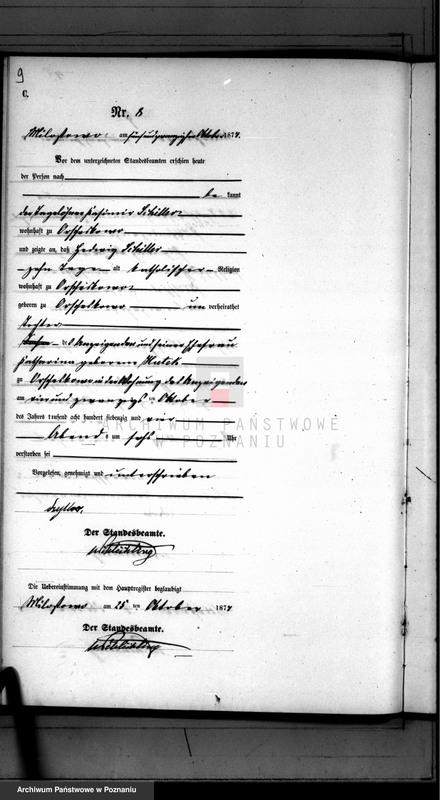 9
C.
Nr. 8
Milostowo am fünfundzwanzigsten Oktober 1874.
Vor dem unterzeichneten Standesbeamten erschien heute
der Person nach
be kannt
der Tagelöhner Kasimir Schiller
wohnhaft zu Orscheskowo
und zeigte an, daß Hedwig Schiller
zehn Tage alt katholischer Religion
wohnhaft zu Orscheskowo
geboren zu Orscheskowo un verheirathet
Tochter
des Anzeigenden und seiner Ehefrau
Katharina geborene
zu Orscheskowo in der Wohnung des Anzeigenden
am vier und zwanzigsten Oktober
des Jahres tausend acht hundert siebenzig und vier
Abends um sechs Uhr
verstorben sei
Vorgelesen, genehmigt und unterschrieben
Der Standesbeamte.
Die Uebereinstimmung mit dem Hauptregister beglaubigt
Milostowo am 25 ten Oktober 1874
Der Standesbeamte.
ARCHIWUM PAŃSTWOWE
W POZNANIU
Archiwum Państwowe w Poznaniu